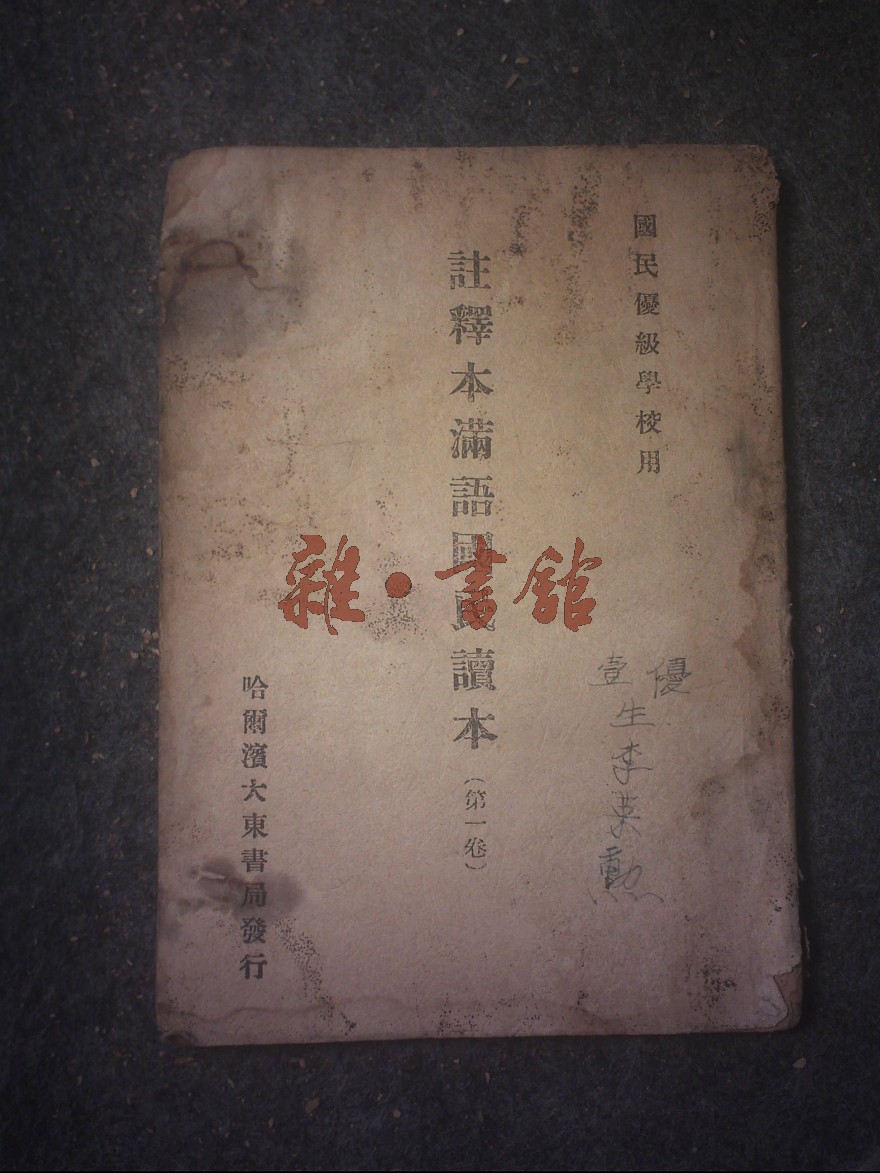 國民優級學校用
註釋本滿語國民讀本（第一卷）
哈爾濱大東書局發行
優
壹生李英勳
雜·書館